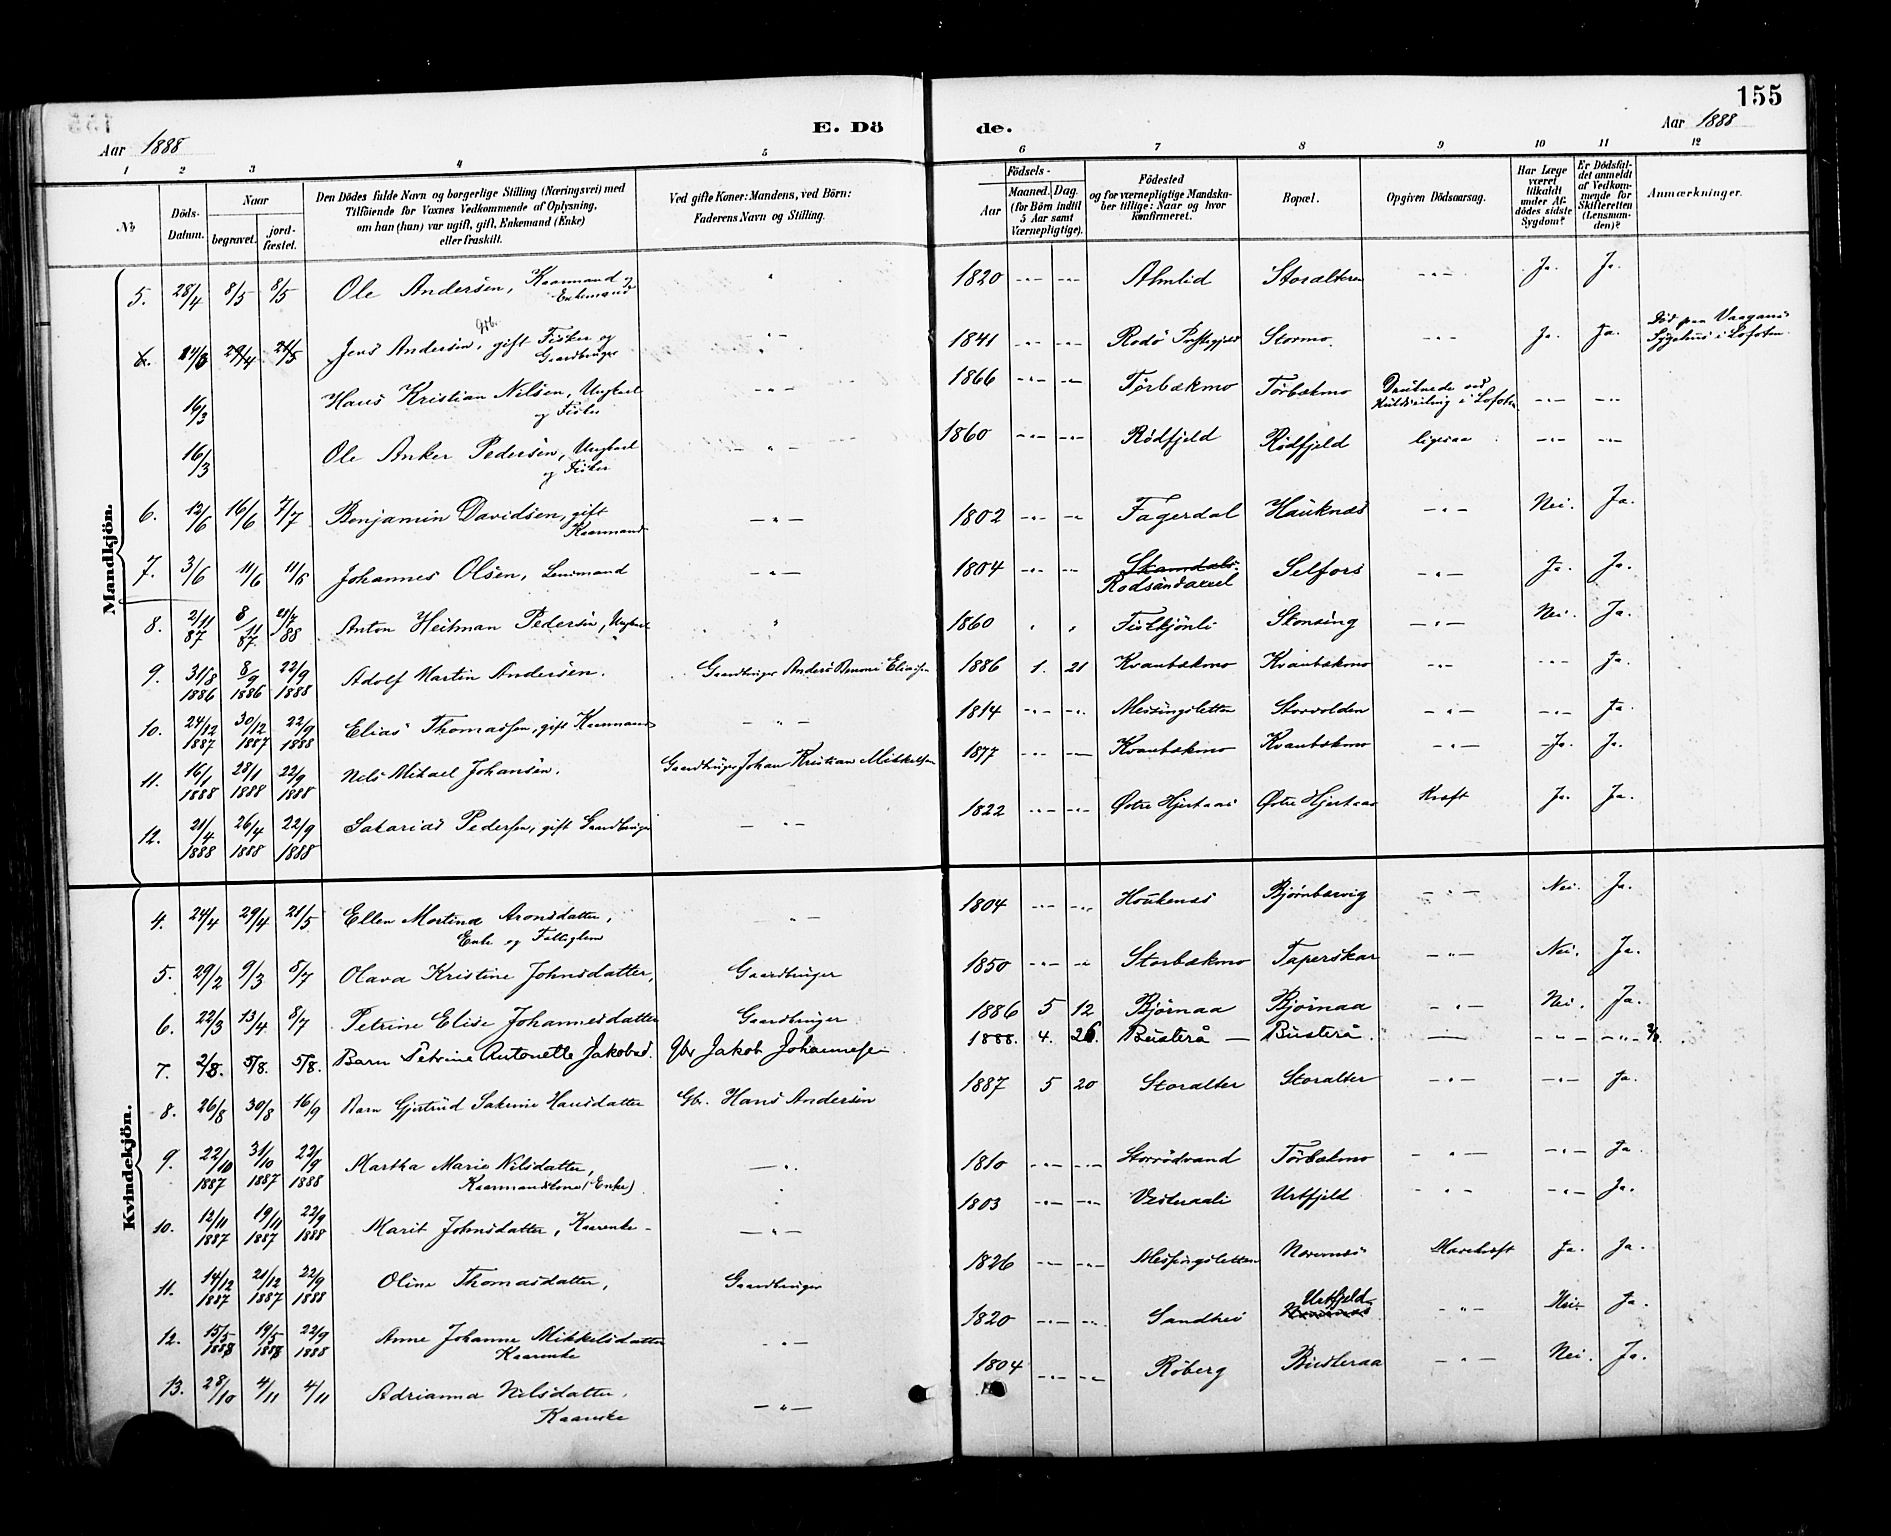 155
Aar 1888
E. Dö de.
Aar 1888
1 2 3 4 5 6 7 8 9 10 11 12
No
Döds-Datum.
Naar
begravet.
jord-fæstet.
Den Dödes fulde Navn og borgerlige Stilling (Næringsvei) med
Tilföiende for Voxnes Vedkommende af Oplysning,
om han (hun) var ugift, gift, Enkemand (Enke)
eller fraskilt.
Ved gifte Koner: Mandens, ved Börn:
Faderens Navn og Stilling.
Födsels-
Aar
Maaned. Dag.
(for Börn indtil
5 Aar samt
Værnepligtige).
Födested
og for værnepligtige Mandska-
ber tillige: Naar og hvor
Konfirmeret.
Bopæl.
Opgiven Dödsaarsag.
Har Læge
været
tilkaldt
under Af-
dödes sidste
Sygdom?
Er Dödsfal-
det anmeldt
af Vedkom-
mende for
Skifteretten
(Lensman-
den)?
Anmærkninger.
Mandkjön.
5. 28/4 8/5 8/5 Ole Andersen, Kaarmand og Enkemand " 1820 -"- -"- Almlid Storalteren -"- Ja. Ja.
6. 29/4 21/5 Jens Andersen, gift Fisker og Gaardbruger Gbr. -"- 1841 -"- -"- Rodö Stormo. -"- Ja. Ja. Död paa Vaagans Sygehus i Lofoten
16/3 Hans Kristian Nilsen, Ungkarl og Fisker -"- 1866 -"- -"- Torbækmo Torbækmo Druknede ved Kuldseiling i Lofoten -"- -"-
16/3 Ole Anker Pedersen, Ungkarl og Fisker -"- 1860 -"- -"- Rödfjeld Rödfjeld ligesaa -"- -"-
6. 12/6 16/6 7/7 Benjamin Davidsen, gift Kaarmand -"- 1802 -"- -"- Fagerdal Hauknæs -"- Nei. Ja.
7. 3/6 11/6 11/6 Johannes Olsen, Lensmand -"- 1804 -"- -"- Rodsandaxel Selfors -"- Ja. Ja.
8. 2/11 87 8/11 87. 88 Anton Heitman Pedersen, Ungkarl " 1860 " " Fiskkjönli Stensing -"- Nei. Ja.
9. 31/8 1886 8/9 1886 22/9 1888 Adolf Martin Andersen. Gaardbruger Anders Benoni Eliassen 1886 1. 21 Kvanbækmo Kvanbækmo -"- -"- Ja.
10. 24/12 1887 30/12 1887 22/9 1888 Elias Thomassen, gift Kaarmand -"- 1814 -"- -"- Messingsletten Storvolden -"- -"- Ja.
11. 16/1 1888 28/1 1888 22/9 1888 Nils Mikael Johansen. Gaardbruger Johan Kristian Mikkelsen 1877 -"- -"- Kvanbækmo Kvanbækmo -"- Ja. Ja.
12. 21/4 1888 26/4 1888 22/9 1888 Sakarias Pedersen, gift Gaardbruger -"- 1822 -"- -"- Østre Hjertaas Østre Hjertaas Kræft Ja. Ja.
Kvindekjön.
4. 24/4 29/4 21/5 Ellen Mortina Aronsdatter, Enke og Fattiglem -"- 1804 -"- -"- Houkenæs Bjørnbærvig -"- Nei. Ja.
5. 29/2 9/3 8/7 Olava Kristine Johnsdatter, Gaardbruger 1850 -"- " Storbækmo Taperskar -"- Nei. Ja.
6. 22/3 13/4 8/7 Petrine Elise Johannesdatter Gaardbruger 1886 5 12 Bjørnaa Bjørnaa -"- Nei. Ja.
7. 2/8. 5/8. 5/8. Barn Petrine Antonette Jakobsd. Gbr Jakob Johannesen 1888. 4. 26. Busterå — Busterå. — -"- -"-
8. 26/8 30/8 16/9 Barn Gjertrud Sakrine Hansdatter Gbr. Hans Andersen 1887 5 20 Storalter Storalter -"- -"- Ja.
9. 22/10 1887 31/10 1887 22/9 1888 Martha Marie Nilsdatter, Kaarmandskone (Enke) -"- 1810 -"- -"- Storrödvand Törbækmo -"- -"- Ja.
10. 12/11 1887 19/11 1887 22/9 1888 Marit Johnsdatter, Kaarenke -"- 1803 -"- -"- Vesteraali Urtfjeld -"- -"- Ja.
11. 14/12 1887 21/12 1887 22/9 1888 Oline Thomasdatter, Gaardbruger 1826 -"- -"- Messingsletten Nævernes Mavekræft Ja. Ja.
12. 15/5 1888 19/5 1888 22/9 1888 Anne Johanne Mikkelsdatter Kaarenke -"- 1820 -"- -"- Sandhei Urtfjeld -"- Nei. Ja.
13. 28/10 4/11 4/11 Adrianna Nilsdatter. Kaarenke -"- 1804 -"- -"- Röberg Busteraa -"- Nei. Ja.